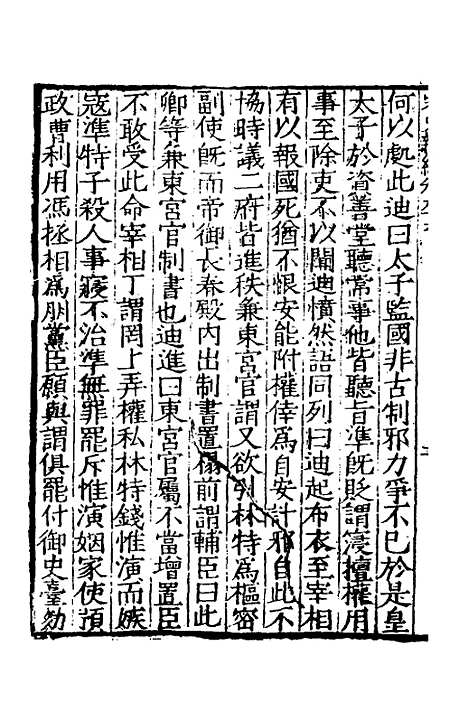 何以處此迪曰太子監國非古制邪力爭不已於是皇
太子於資善堂聽常事他皆聽旨準既貶謂寖擅權用
事至除吏不以聞迪憤然語同列曰迪起布衣至宰相
有以報國死猶不恨安能附權倖為自安計邪自此不
協時議二府皆進秩兼東宮官謂又欲引林特為樞密
副使既而帝御長春殿內出制書置榻前謂輔臣曰此
卿等兼東宮官制書也迪進曰東宮官屬不當增置臣
不敢受此命宰相丁謂罔上弄權私林特錢惟演而嫉
寇準特子殺人事寢不治準無罪罷斥惟演姻家使預
政曹利用馮拯相為朋黨臣願與謂俱罷付御史臺劾